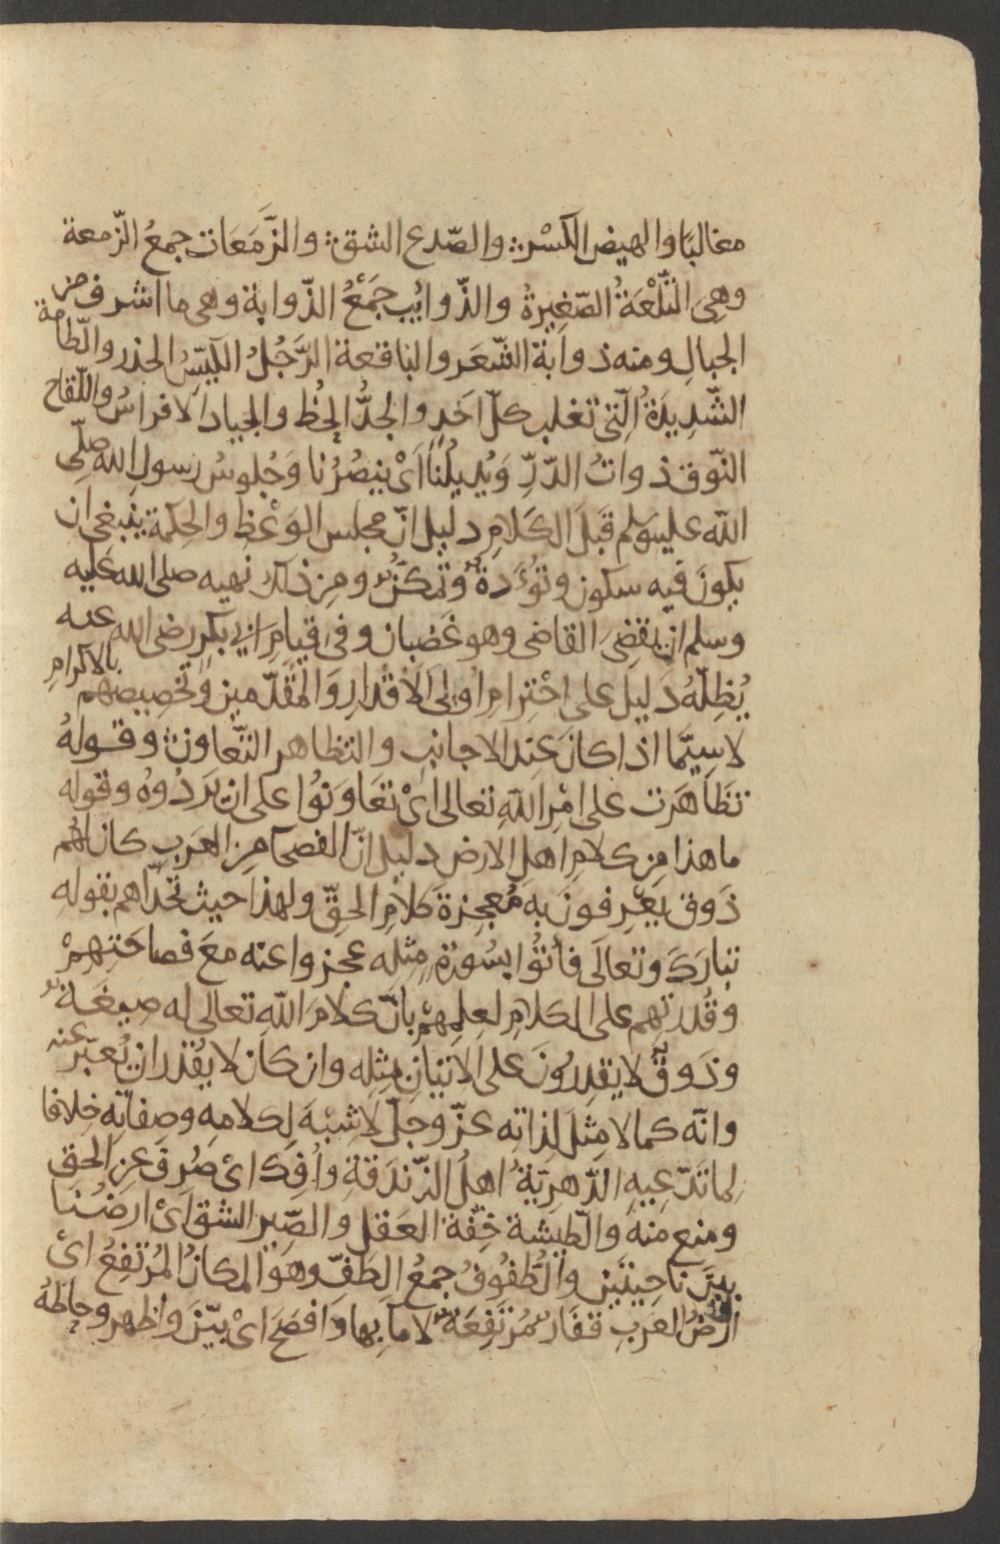 مغالبًا والهيض الكَسْر؛ والصّدع الشق؛ والزَّمَعَات جمعُ الزّمعة
وهيَ التَّلْعَةُ الصّغِيرةُ والذّوائِب جَمْعُ الذّوابة وهى ما اشرف من
الجبالِ ومنه ذوابة الشّعَر والباقعة الرَّجُلُ الكَيِّسُ الحذر والطّامة
الشَّدِيدَةُ الّتى تغلب كلّ اَحَدٍ والجدُّ الحُظ والجياد الافراسُ واللّقاح
النّوق ذواتُ الدّرِّ وَيُدِيلُنا اَىْ ينصُرُنا وَجُلوسُ رسولِ الله صلّى
الله عليه وسلم قَبلَ الكَلامِ دليل انّ مجلس الوَعْظِ والحِكمة ينبغى ان
يكونَ فيه سكون وتُؤَدةٌ وتمكنٌ ومن ذلك نهيه صلى الله عَليه
وسلم ان يقضىَ القاضى وهو غَضبان وفى قيامِ ابى بكرٍ رضى الله عنه
يُظِلّهُ دَليل على احْتِرامِ اولِى الاَقْدارِ وَالمُقَدّمين وتخصِيصهم بالاكرامِ
لاسِيّما اذا كانَ عَند الاجانب والتظاهر التَّعاون؛ وقولهُ
تظَاهَرت على امْرِ اللهِ تعالى اىْ تعَاوَنُوا على ان يَردُوهُ وقوله
ما هذا مِن كلامِ اهلِ الارض دليل انّ الفصحآ مِن العَرب كان لهُم
ذَوق يَعْرِفونَ به مُعجِزةَ كلامِ الحقّ ولهذا حيث تحدّاهم بقولِهِ
تبَارَكَ وتعالَى فأتوُا بسُورَةٍ مِثِله عجزوا عنه معَ فصاحَتِهِمْ
وقُدرتِهِم على الكلامِ لعِلمِهِمْ بانّ كلامَ اللهِ تعالى له صِيغَةٌ
وذَوقٌ لا يقدِرُونَ على الاتيانِ مِثِله وان كَانَ لا يقْدر ان يُعبّر عنه
وانّه كما لا مِثلَ لِذاتِه عزّ وجلّ لا شِبْهَ لكلامِه وصِفاتِه خِلافا
لما تَدّعِيهِ الدّهرِيّةُ اهلُ الزّندَقةِ واُفِكَ اىْ صُرِفَ عنِ الحَق
ومنع منه والطّيشة خِفّة العَقلِ والصّير الشق اَىْ ارضُنا
بينَ ناحِيتَينِ والطُّفُوفُ جمعُ الطَّفّ وهوَ المكانُ المُرْتَفِعُ اىْ
ارضُ العَربِ قفَارٌ مُرْتَفِعَةٌ لا مآ بِها وَافصَحَ اىْ بيّنَ واظهر وحاطَهُ